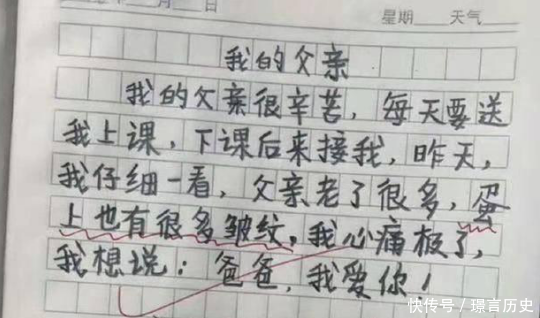 月 日
星期 天气
我的父亲
我的父亲很辛苦，每天要送
我上课，下课后来接我，昨天，
我仔细一看，父亲老了很多，蛋
上也有很多皱纹，我心痛极了，
我想说：爸爸，我爱你！
快传号／璟言历史